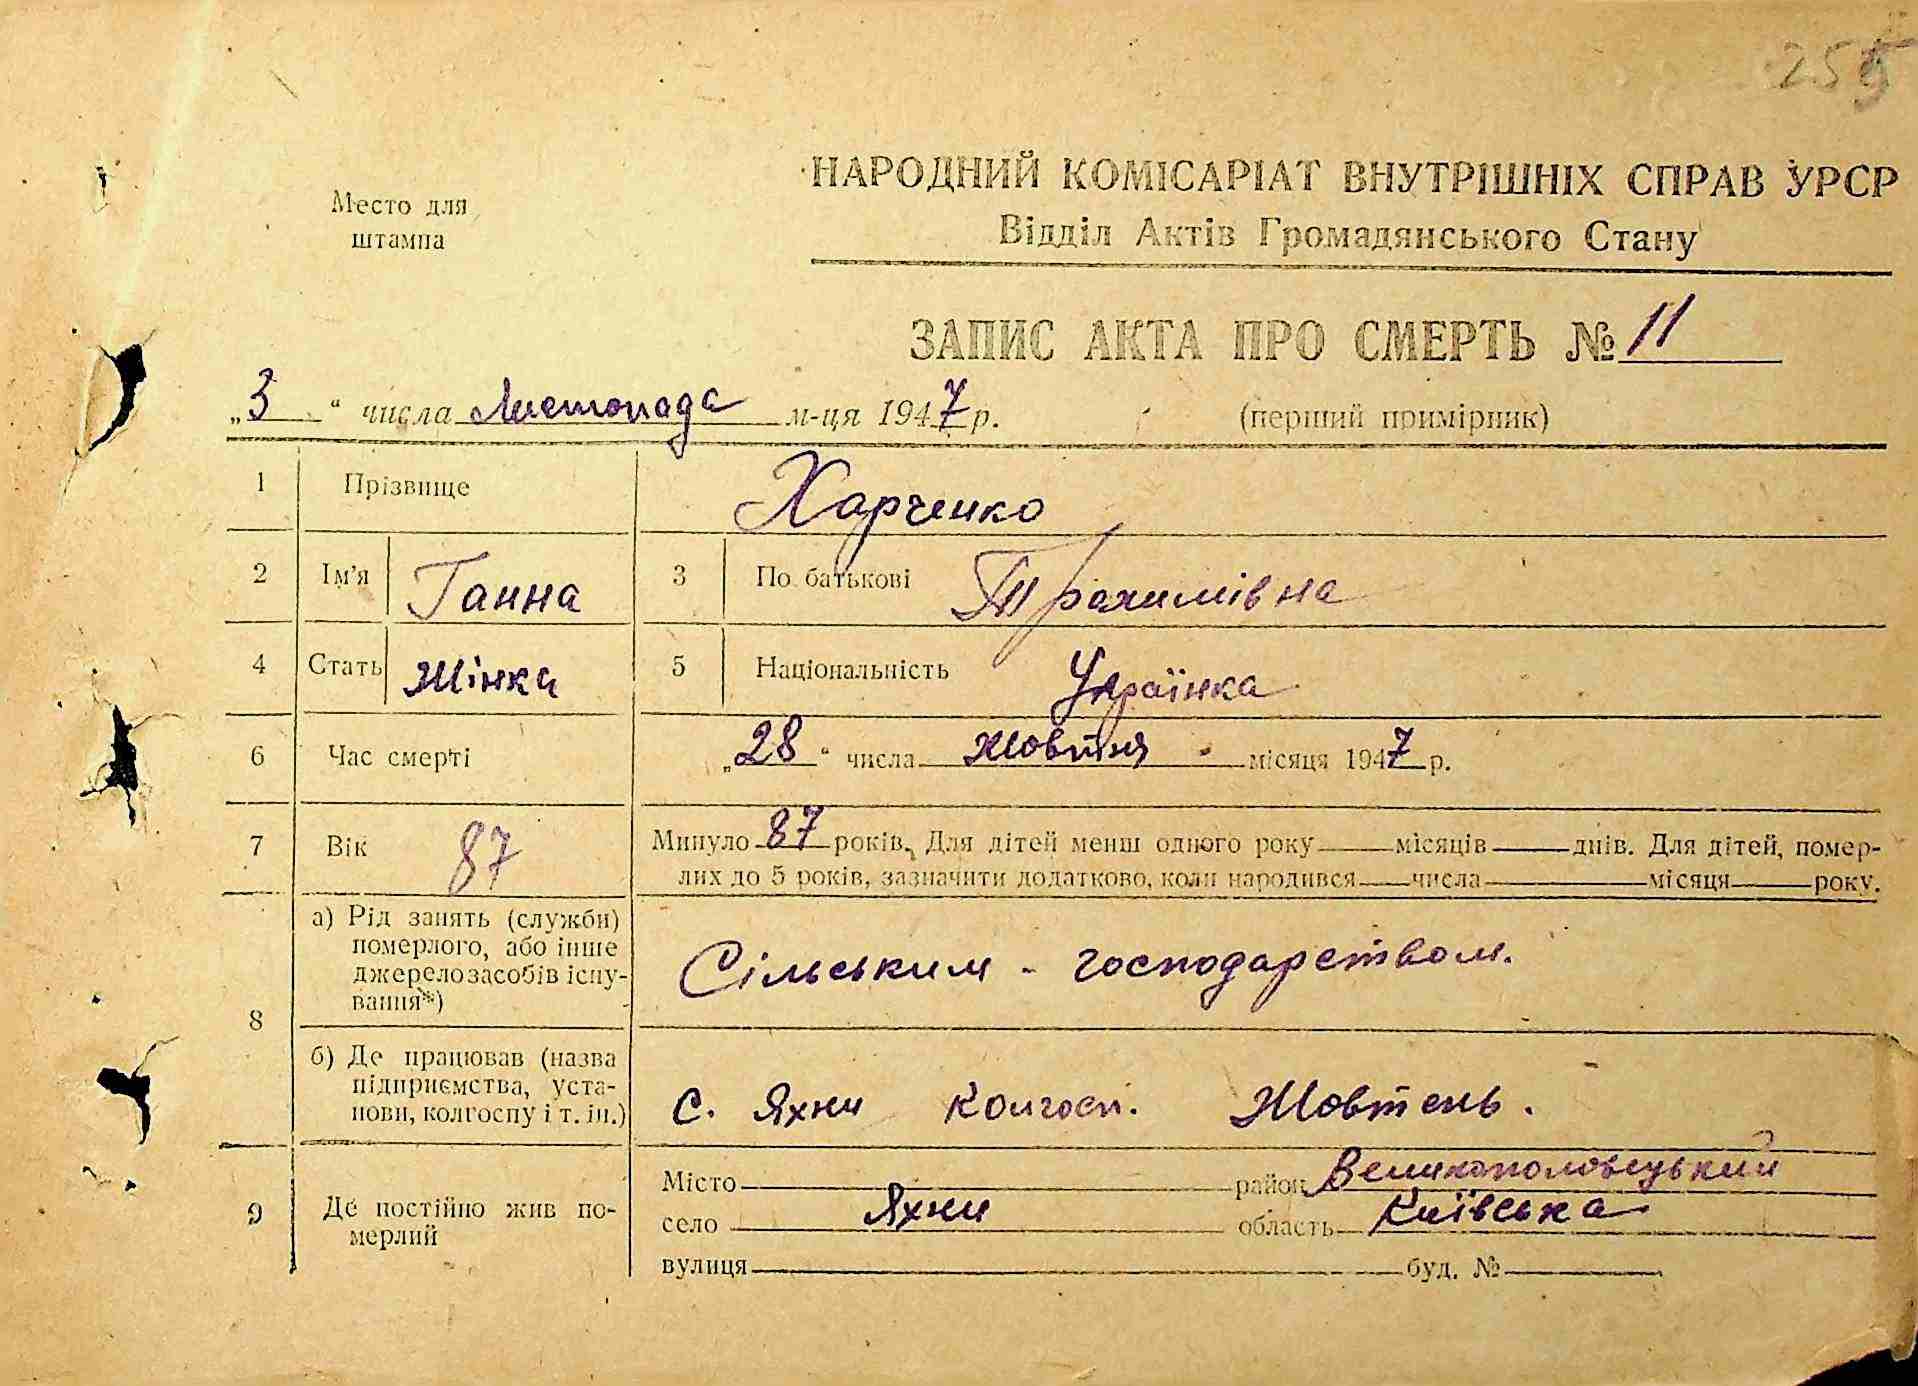 255
Место для
штампа
НАРОДНИЙ КОМІСАРІАТ ВНУТРІШНІХ СПРАВ УРСР
Відділ Актів Громадянського Стану
ЗАПИС АКТА ПРО СМЕРТЬ № 11
„3“ числа Листопада м-ця 1947 р. (перший примірник)
1 Прізвище Харченко
2 Ім'я Ганна 3 По батькові Трохимівна
4 Стать Жінка 5 Національність Українка
6 Час смерті „28“ числа жовтня місяця 1947 р.
7 Вік 87 Минуло 87 років. Для дітей менш одного року місяців днів. Для дітей, помер-
лих до 5 років, зазначити додатково, коли народився числа місяця року.
8 а) Рід занять (служби)
померлого, або інше
джерело засобів існу-
вання*)
Сільським - господарством.
б) Де працював (назва
підприємства, уста-
нови, колгоспу і т. ін.)
с. Яхни колгосп. Жовтень.
9 Де постійно жив по-
мерлий
Місто район Великополовецький
село Яхни область Київська
вулиця буд. №